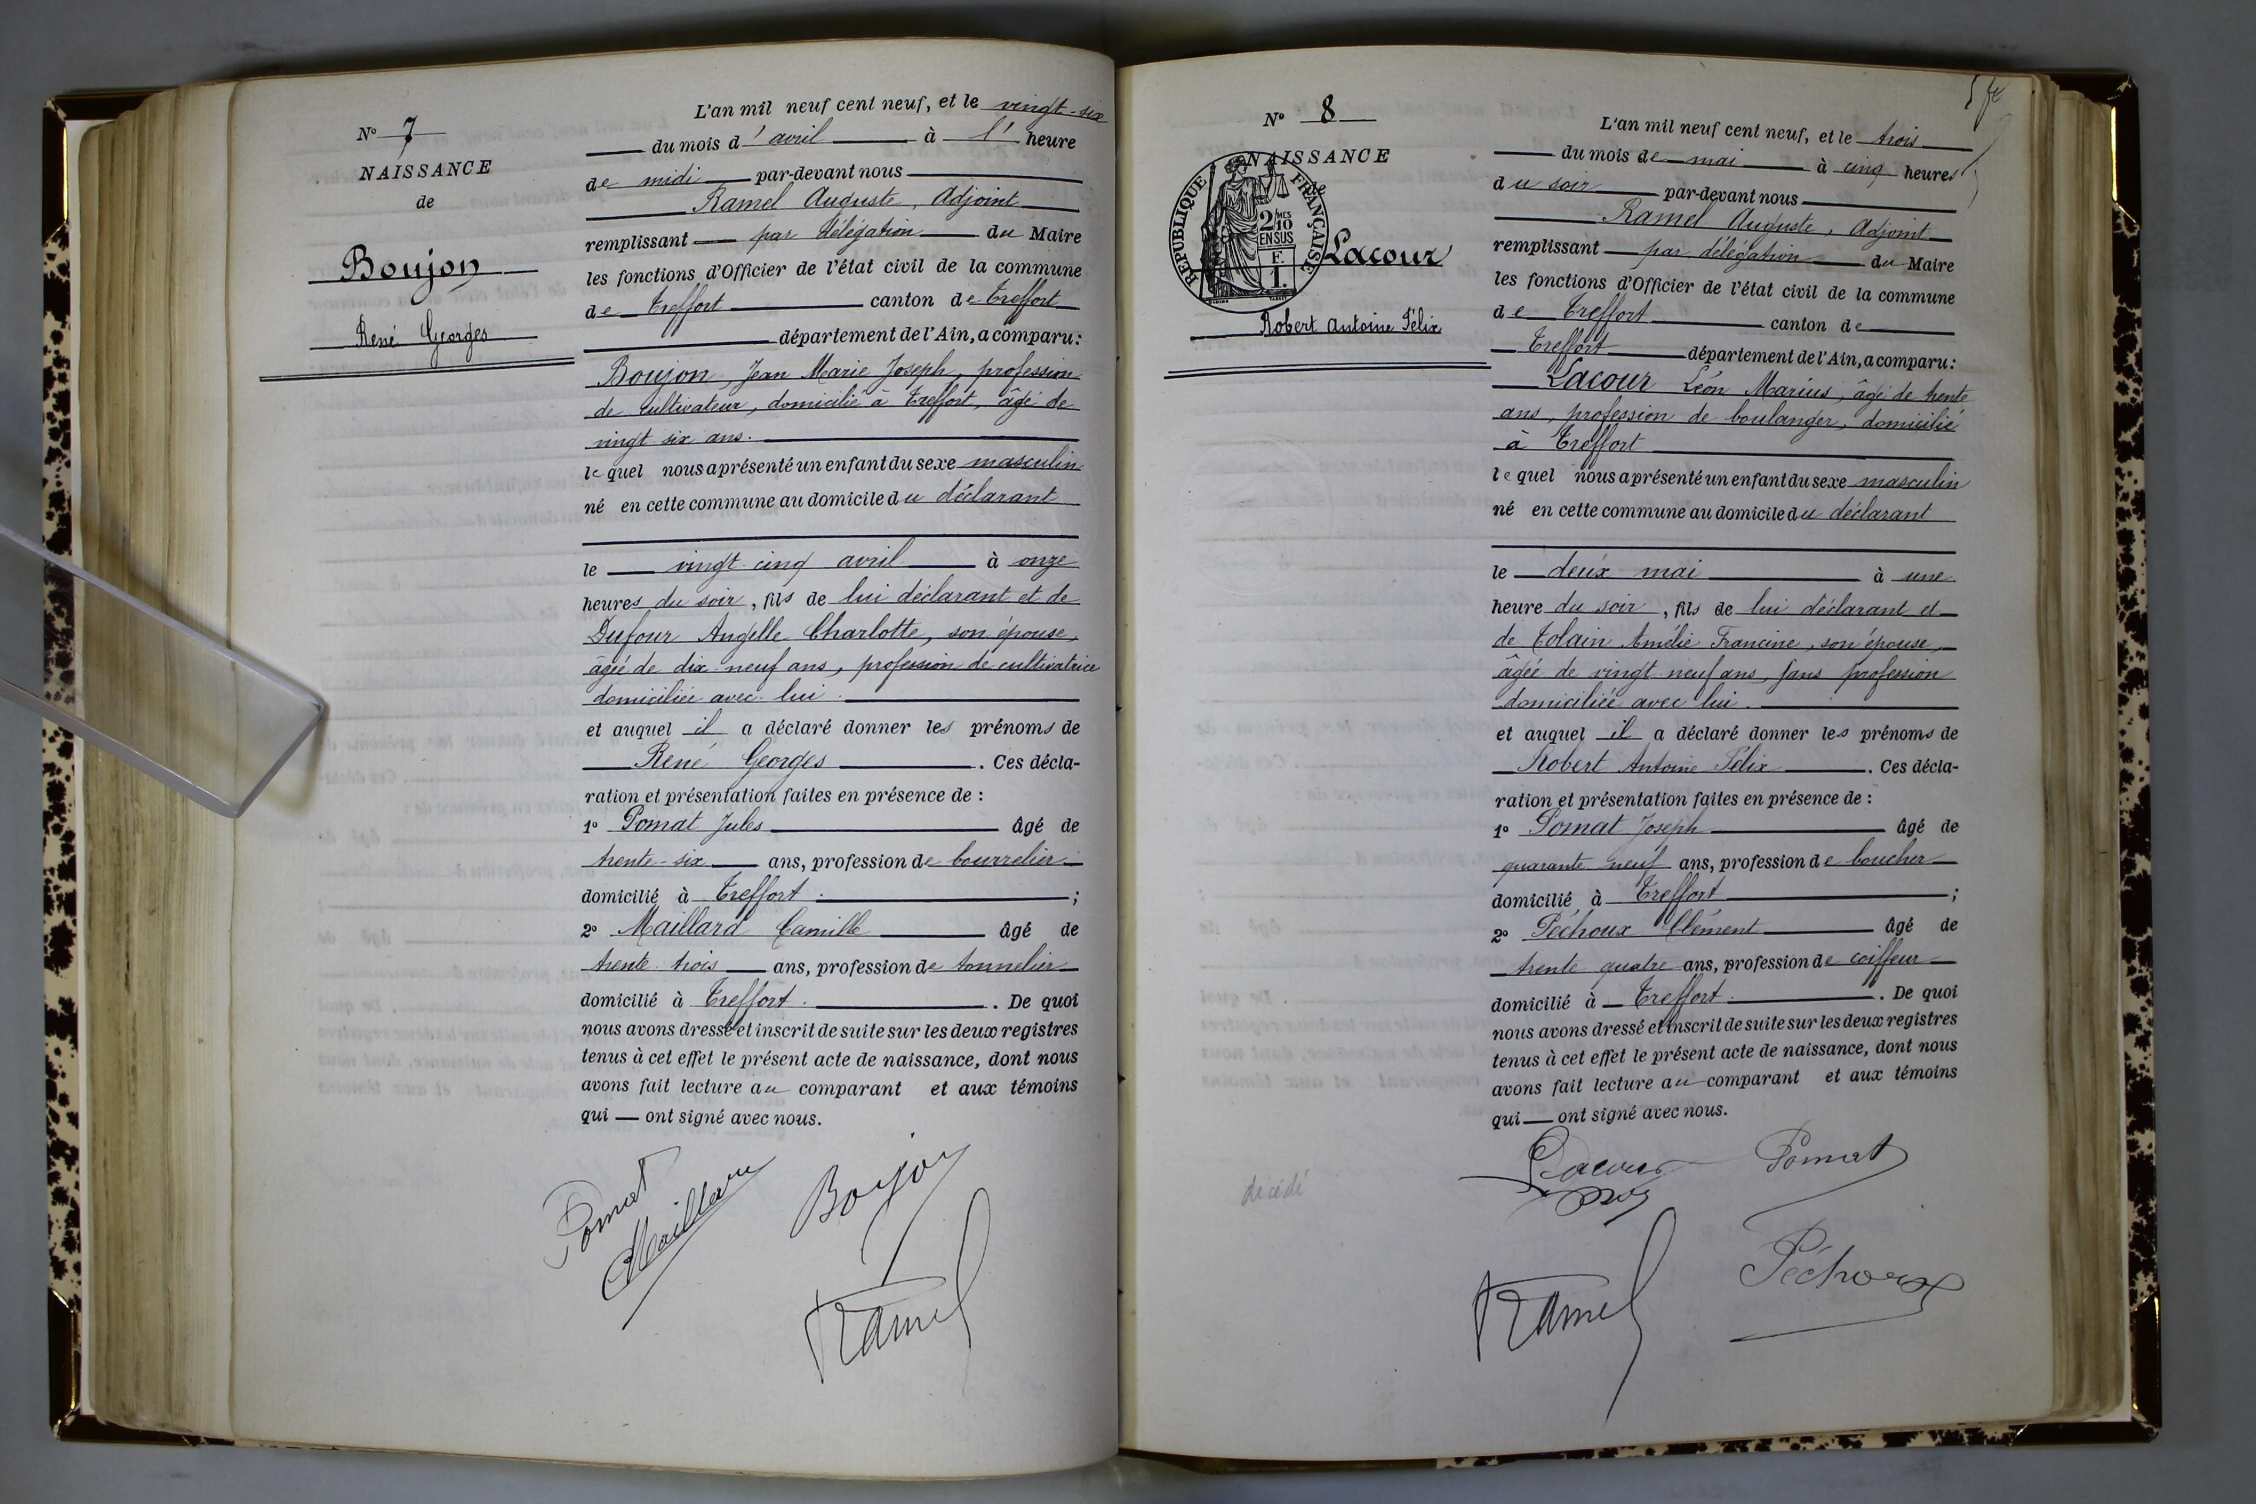 N° 7
NAISSANCE
de
Boujon
René Georges
L'an mil neuf cent neuf, et le vingt-six
du mois d'avril à l'heure
de midi par-devant nous
Ramel Auguste, Adjoint
remplissant par délégation du Maire
les fonctions d'Officier de l'état civil de la commune
de Treffort canton de Treffort
département de l'Ain, a comparu:
Boujon, Jean Marie Joseph, profession
de cultivateur, domicilié à Treffort, âgé de
vingt six ans.
lequel nous a présenté un enfant du sexe masculin
né en cette commune au domicile du déclarant
le vingt cinq avril à onze
heures du soir, fils de lui déclarant et de
Dufour Angelle Charlotte, son épouse,
âgée de dix-neuf ans, profession de cultivatrice
domiciliée avec lui.
et auquel il a déclaré donner les prénoms de
René Georges . Ces décla-
ration et présentation faites en présence de :
1° Pomat Jules âgé de
trente-six ans, profession de bourrelier
domicilié à Treffort. ;
2° Maillard Camille âgé de
trente trois ans, profession de tonnelier
domicilié à Treffort. . De quoi
nous avons dressé et inscrit de suite sur les deux registres
tenus à cet effet le présent acte de naissance, dont nous
avons fait lecture au comparant et aux témoins
qui ont signé avec nous.
Pomat
Maillard
Boujon
Ramel
N° 8
NAISSANCE
RÉPUBLIQUE FRANÇAISE
2/10 MES
EN SUS
F.
1.
Lacour
Robert Antoine Félix
L'an mil neuf cent neuf, et le trois
du mois de mai à cinq heures
du soir par-devant nous
Ramel Auguste, Adjoint
remplissant par délégation du Maire
les fonctions d'Officier de l'état civil de la commune
de Treffort canton de
Treffort département de l'Ain, a comparu:
Lacour Léon Marius, âgé de trente
ans, profession de boulanger, domicilié
à Treffort
lequel nous a présenté un enfant du sexe masculin
né en cette commune au domicile du déclarant
le deux mai à une
heure du soir, fils de lui déclarant et
de Tolain Amélie Francine, son épouse,
âgée de vingt neuf ans, sans profession
domiciliée avec lui.
et auquel il a déclaré donner les prénoms de
Robert Antoine Félix . Ces décla-
ration et présentation faites en présence de :
1° Pomat Joseph âgé de
quarante neuf ans, profession de boucher
domicilié à Treffort ;
2° Péchoux Clément âgé de
trente quatre ans, profession de coiffeur
domicilié à Treffort. . De quoi
nous avons dressé et inscrit de suite sur les deux registres
tenus à cet effet le présent acte de naissance, dont nous
avons fait lecture au comparant et aux témoins
qui ont signé avec nous.
décédé
Lacour
Pomat
Ramel
Péchoux